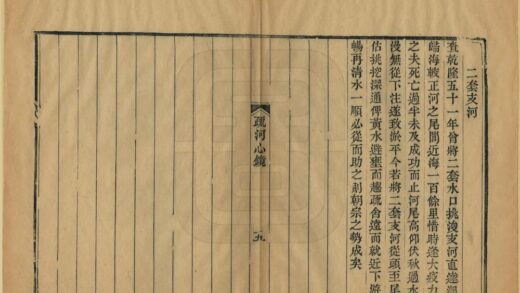 二套支河
查乾隆五十一年曾將二套水口挑浚支河直達
歸海較正河之尾閭近海一百餘里惜時逢大疫力
之夫死亡過半未及成功而止河尾高仰伏秋過水
漫無從下注遂致淤平今若將二套支河從頭至尾
估挑挖深通俾黃水避壅而趨疏舍遠而就近下游
暢再清水一順必從而助之則朝宗之勢成矣
疏河心鏡
九